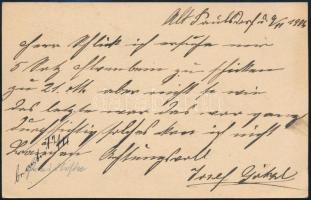 Alt Paulsdorf d 9/II 1906
Herr Schlick ich ersuche mir
5 Satz zu schicken
zu 21. aber nicht so wie
das letzte war das war ganz
durchsichtig solches kan ich nicht
brauchen Achtungsvoll
Josef Göbel